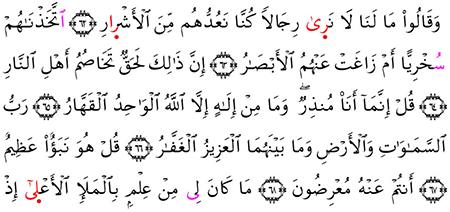 وَقَالُوا۟ مَا لَنَا لَا نَرِىٰ رِجَالًا كُنَّا نَعُدُّهُم مِّنَ ٱلْأَشْرِارِ ﴿٦٢﴾ ٱتَّخَذْنَٰهُمْ
سُخْرِيًّا أَمْ زَاغَتْ عَنْهُمُ ٱلْأَبْصَٰرُ ﴿٦٣﴾ إِنَّ ذَٰلِكَ لَحَقٌّ تَخَاصُمُ أَهْلِ ٱلنَّارِ
﴿٦٤﴾ قُلْ إِنَّمَآ أَنَا۠ مُنذِرٌ ۖ وَمَا مِنْ إِلَٰهٍ إِلَّا ٱللَّهُ ٱلْوَٰحِدُ ٱلْقَهَّارُ ﴿٦٥﴾ رَبُّ
ٱلسَّمَٰوَٰتِ وَٱلْأَرْضِ وَمَا بَيْنَهُمَا ٱلْعَزِيزُ ٱلْغَفَّٰرُ ﴿٦٦﴾ قُلْ هُوَ نَبَؤٌا۟ عَظِيمٌ
﴿٦٧﴾ أَنتُمْ عَنْهُ مُعْرِضُونَ ﴿٦٨﴾ مَا كَانَ لِى مِنْ عِلْمٍۭ بِٱلْمَلَإِ ٱلْأَعْلِىٰٓ إِذْ